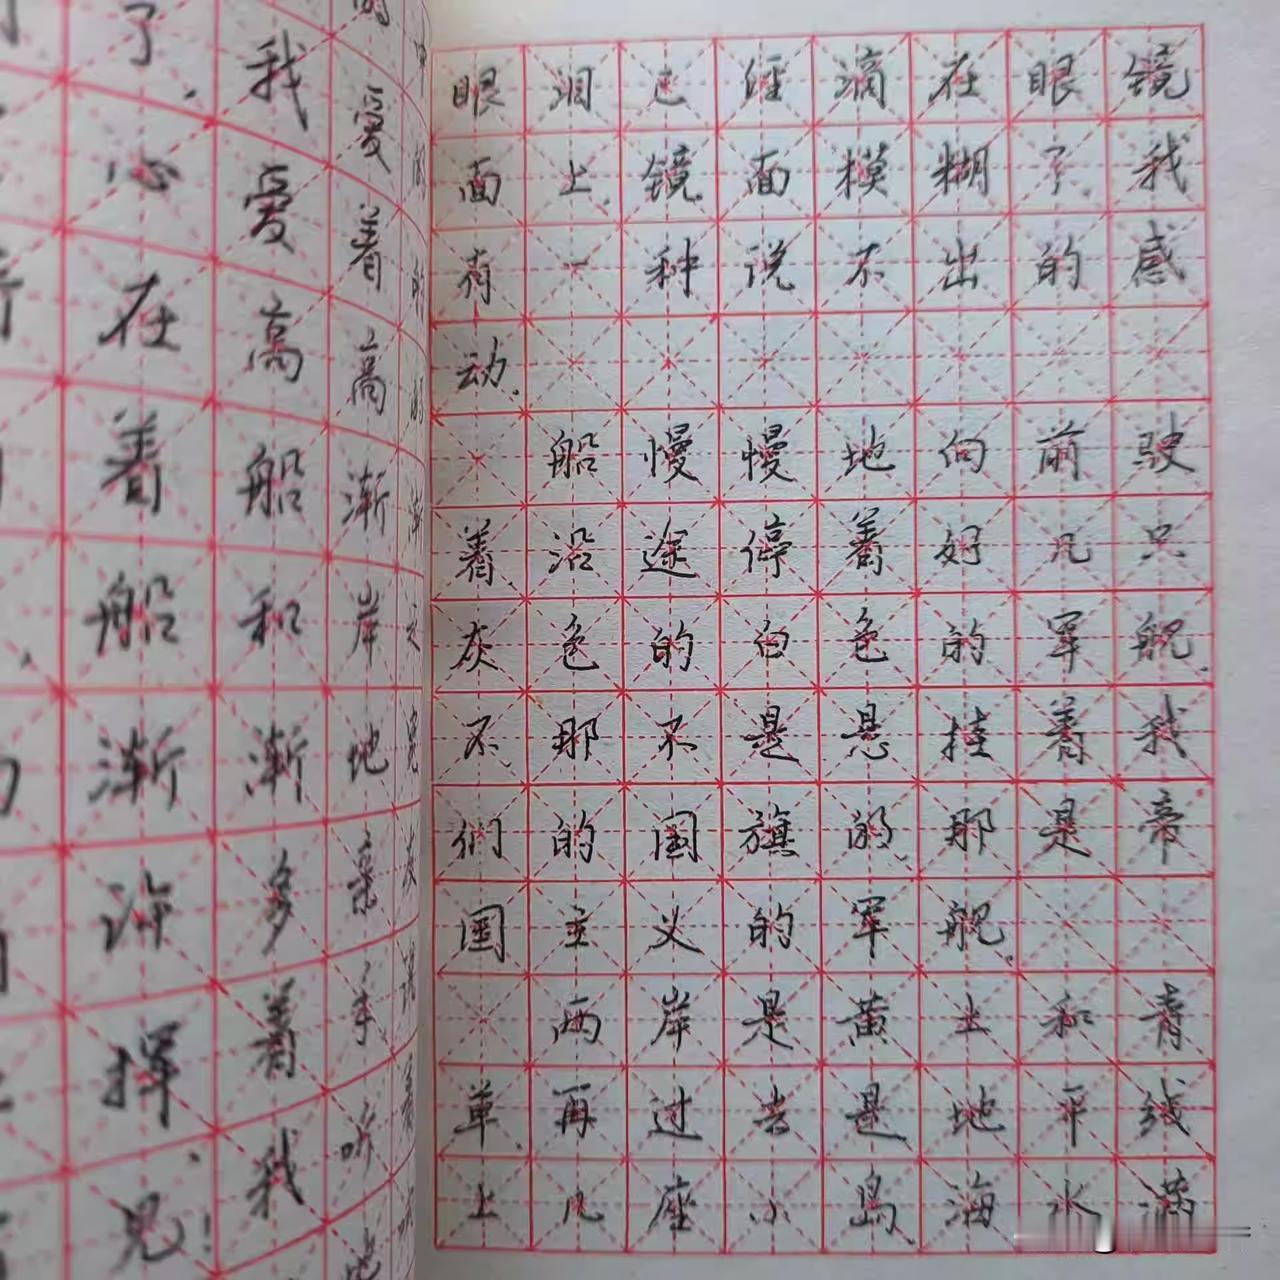 了.我爱
心爱着的
在高高的
着船渐渐
船和岸之
渐渐地宽
许多亲友
挥着手.
见!我听
眼泪已经滴在眼镜
面上.镜面模糊了.我
有一种说不出的感
动.
船慢慢地向前驶
着.沿途停着好几只
灰色的白色的军舰.
不.那不是悬挂着我
们的国旗的.那是帝
国主义的军舰.
两岸是黄土和青
草再过去是地平线
上几座小岛海水满